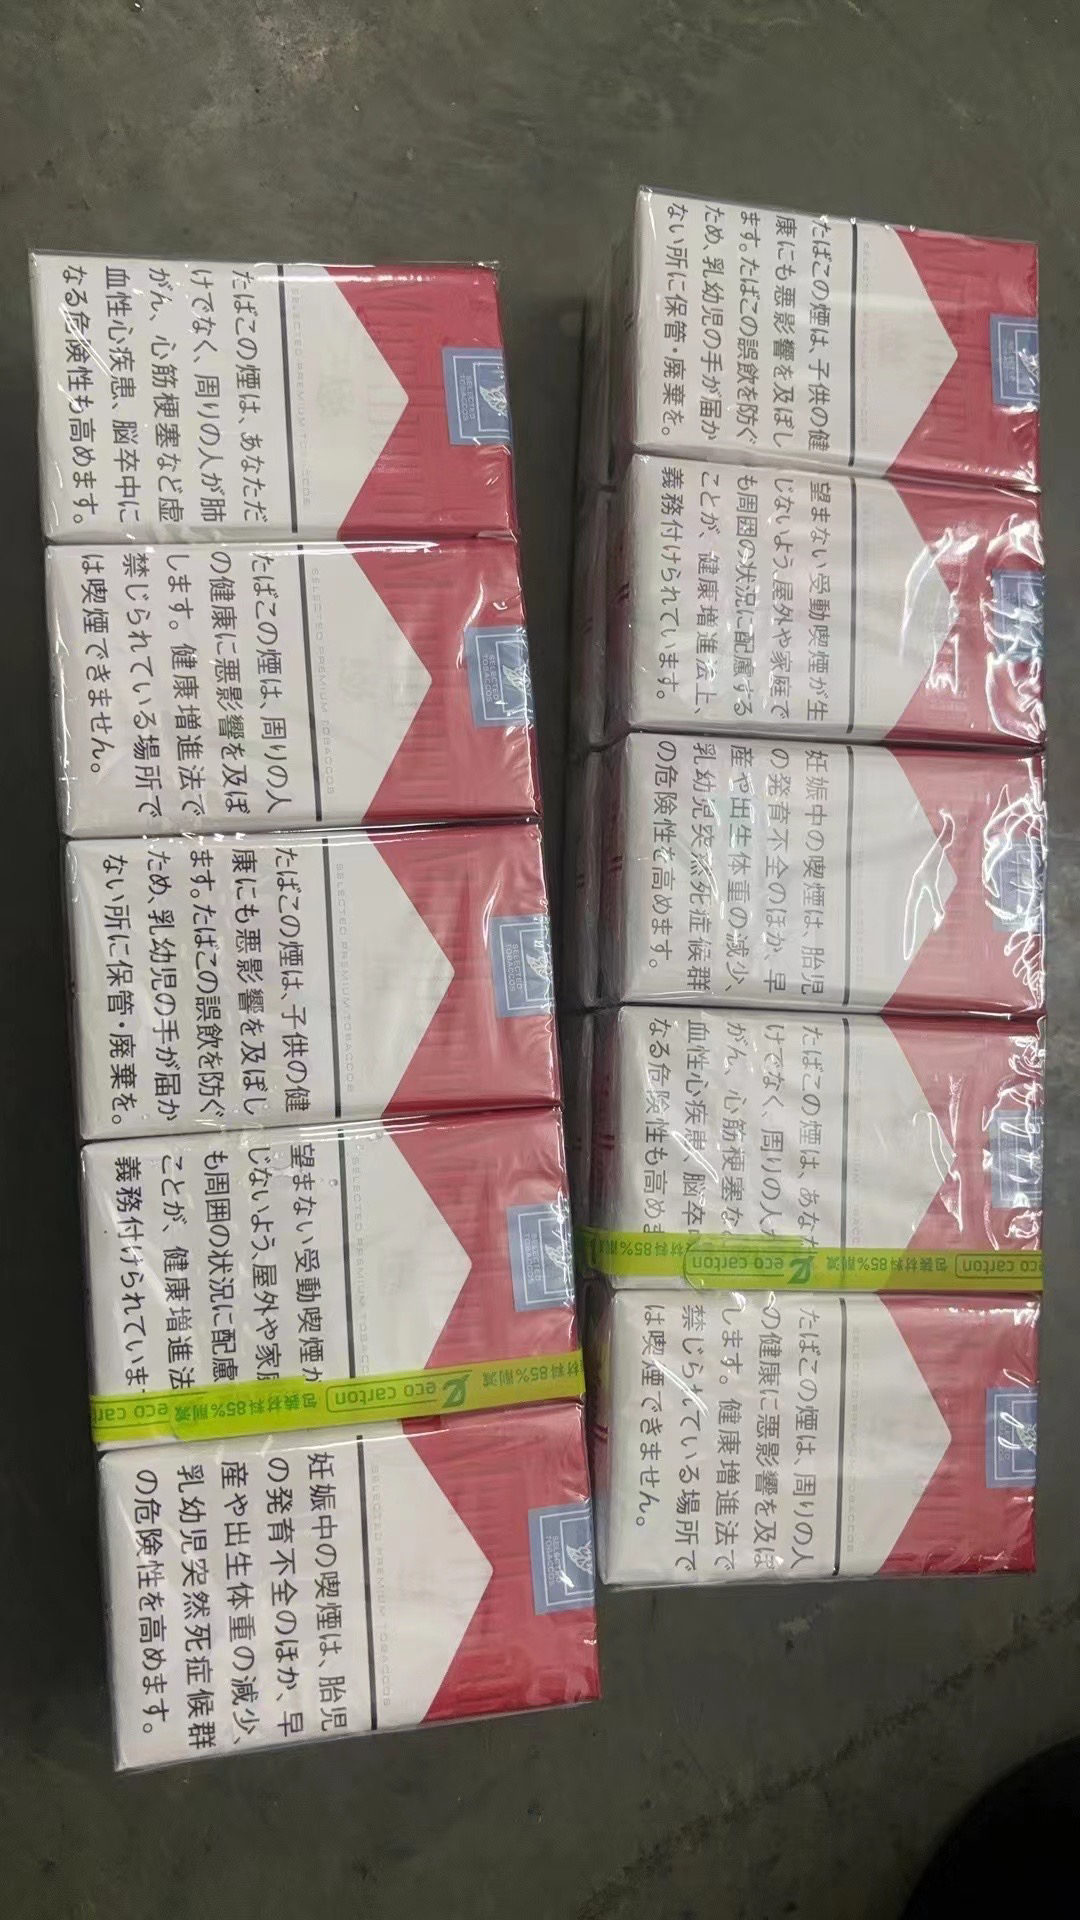 たばこの煙は、あなただ
けでなく、周りの人が肺
がん、心筋梗塞など虚
血性心疾患、脳卒中に
なる危険性も高めます。
SELECTED PREMIUM TOBACCOS
SELECTED
TOBACCOS
たばこの煙は、周りの人
の健康に悪影響を及ぼ
します。健康増進法で
禁じられている場所で
は喫煙できません。
SELECTED PREMIUM TOBACCOS
SELECTED
TOBACCOS
たばこの煙は、子供の健
康にも悪影響を及ぼし
ます。たばこの誤飲を防ぐ
ため、乳幼児の手が届か
ない所に保管・廃棄を。
SELECTED PREMIUM TOBACCOS
SELECTED
TOBACCOS
望まない受動喫煙が
じないよう、屋外や家
も周囲の状況に配慮
ことが、健康増進法
義務付けられていま
SELECTED PREMIUM TOBACCOS
SELECTED
TOBACCOS
eco carton
包装材料85%削減
eco carton
材料85%削減
妊娠中の喫煙は、胎児
の発育不全のほか、早
産や出生体重の減少、
乳幼児突然死症候群
の危険性を高めます。
SELECTED PREMIUM TOBACCOS
SELECTED
TOBACCOS
たばこの煙は、子供の健
康にも悪影響を及ぼし
ます。たばこの誤飲を防ぐ
ため、乳幼児の手が届か
ない所に保管・廃棄を。
望まない受動喫煙が生
じないよう、屋外や家庭で
も周囲の状況に配慮する
ことが、健康増進法上、
義務付けられています。
妊娠中の喫煙は、胎児
の発育不全のほか、早
産や出生体重の減少、
乳幼児突然死症候群
の危険性を高めます。
たばこの煙は、あなた
けでなく、周りの人が
がん、心筋梗塞な
血性心疾患、脳卒中
なる危険性も高め
材料85%削減
eco carton
包装材料85%削減
eco carton
たばこの煙は、周りの人
の健康に悪影響を及ぼ
します。健康増進法で
禁じられている場所で
は喫煙できません。